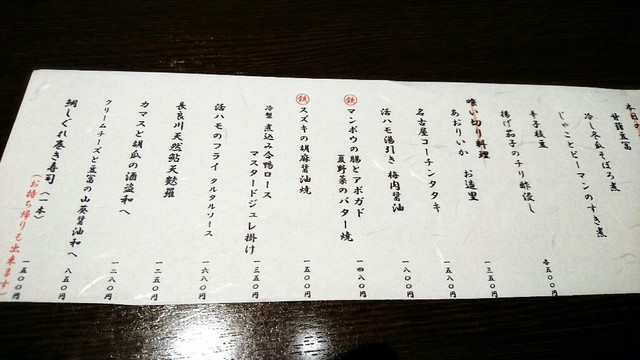 本日の
甘鶴豆冨
冷し冬瓜そぼろ煮
じゃことピーマンのすき煮
辛子枝豆 各五〇〇円
揚げ茄子のチリ酢浸し
喰い切り料理
あおりいか お造里 一三五〇円
名古屋コーチンタタキ 一五〇〇円
活ハモ湯引き 梅肉醤油 一八〇〇円
鉄 マンボウの腸とアボガド
夏野菜のバター焼 一四八〇円
鉄 スズキの胡麻醤油焼 一五〇〇円
冷製 煮込み合鴨ロース
マスタードジュレ掛け 一三五〇円
活ハモのフライ タルタルソース 一六八〇円
長良川天然鮎天麩羅 一二五〇円
カマスと胡瓜の酒盗和へ 一二八〇円
クリームチーズと豆冨の山葵醤油和へ 八五〇円
鯛しぐれ巻き寿司(一本) 一五〇〇円
(お持ち帰りも出来ます)